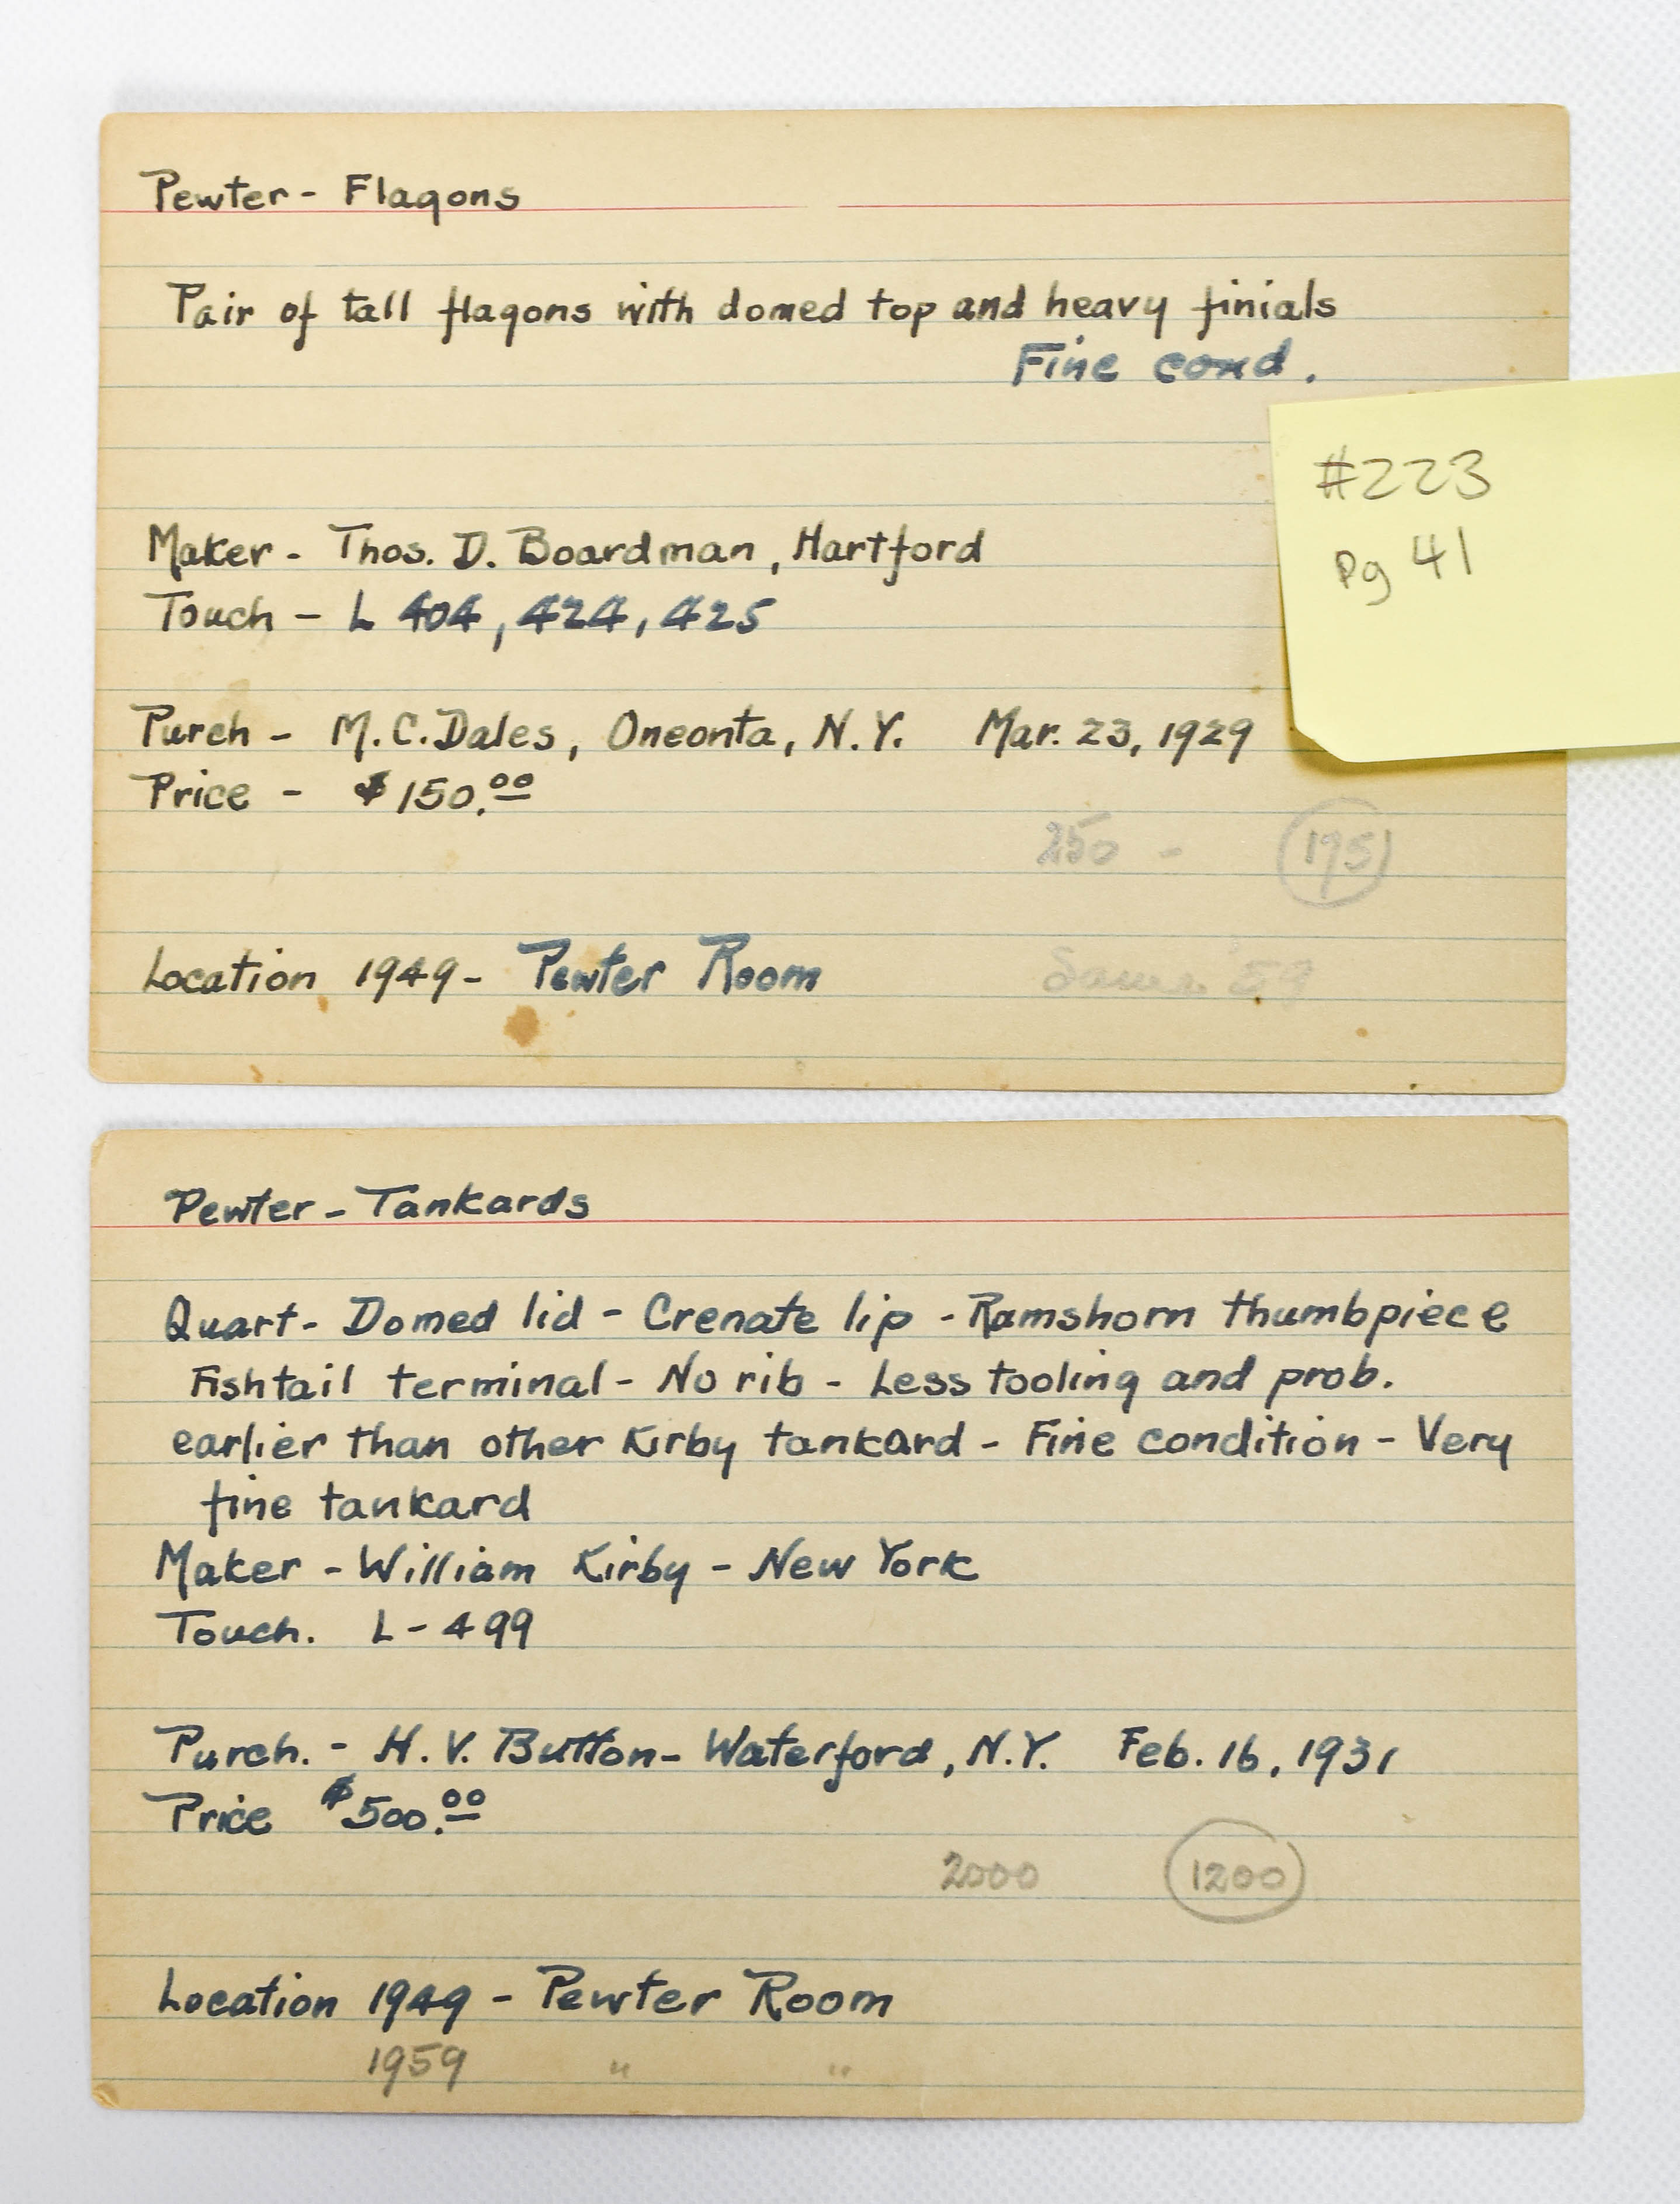 Pewter - Flagons
Pair of tall flagons with domed top and heavy finials
Fine cond.
#223
pg 41
Maker - Thos. D. Boardman, Hartford
Touch - L 404, 424, 425
Purch - M.C. Dales, Oneonta, N.Y. Mar. 23, 1929
Price - $150.00
250 - 195
Location 1949 - Pewter Room
59
Pewter - Tankards
Quart - Domed lid - Crenate lip - Ramshorn thumbpiece
Fishtail terminal - No rib - Less tooling and prob.
earlier than other Kirby tankard - Fine condition - Very
fine tankard
Maker - William Kirby - New York
Touch. L - 499
Purch. - H.V. Button - Waterford, N.Y. Feb. 16, 1931
Price $500.00
2000 1200
Location 1949 - Pewter Room
1959 " "